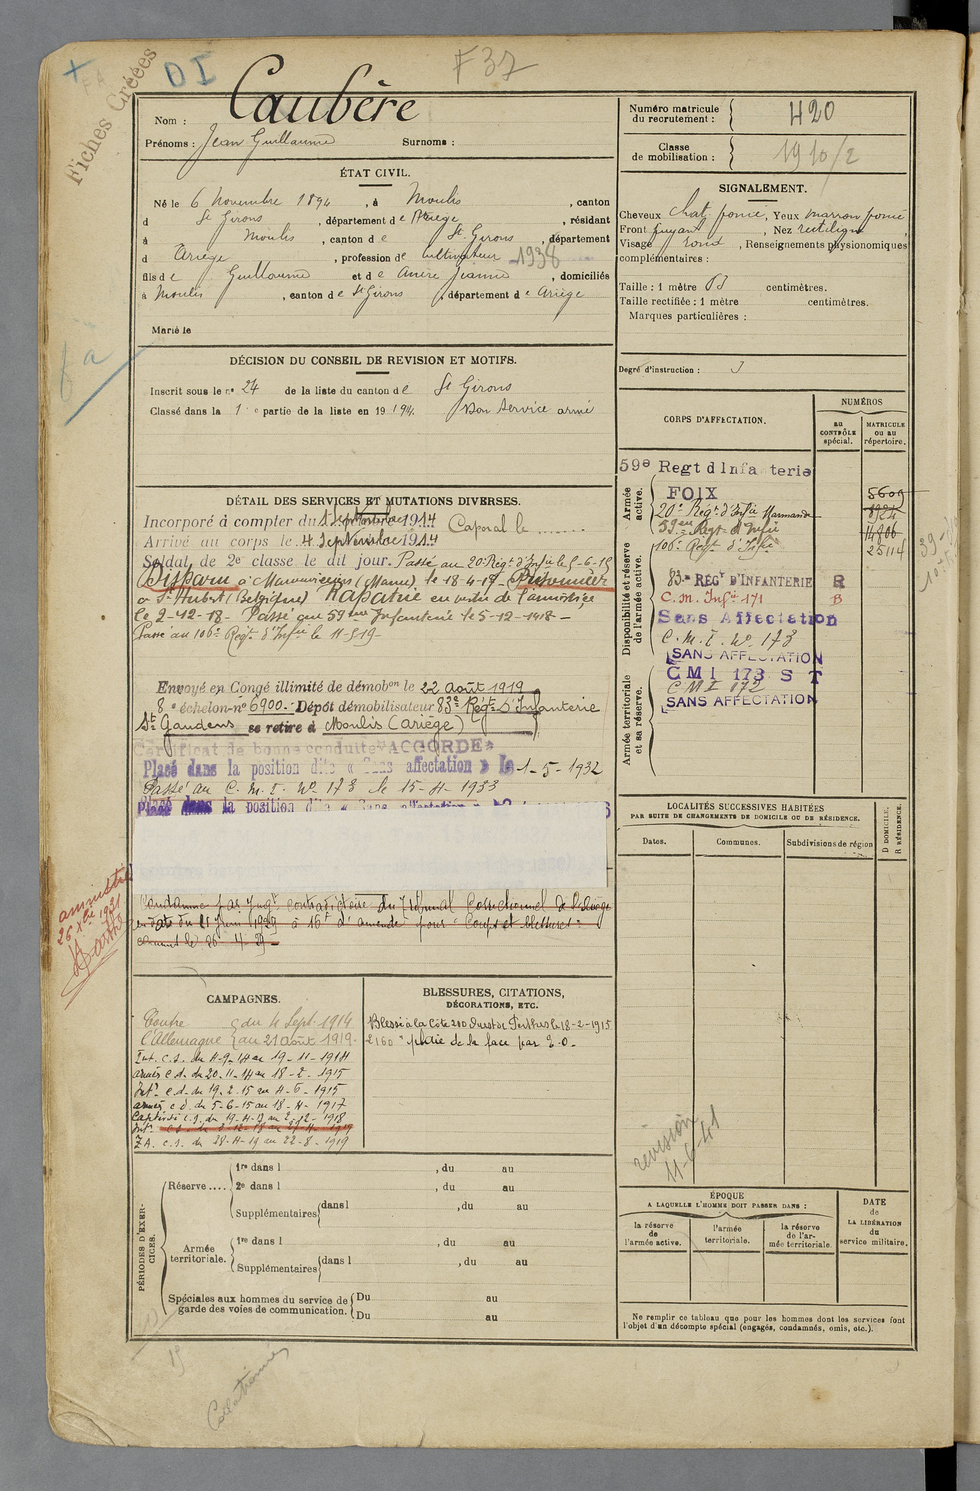 Fiches Créées
DI
F 37
Nom : Caubère
Prénoms : Jean Guillaume Surnoms :
ÉTAT CIVIL.
Né le 6 Novembre 1894, à Moulis, canton
d St Girons, département de Ariège, résidant
à Moulis, canton de St Girons, département
d Ariège, profession de cultivateur 1938
fils de Guillaume et de Anère Jeanne, domiciliés
à Moulis, canton de St Girons, département de Ariège
Marié le
DÉCISION DU CONSEIL DE REVISION ET MOTIFS.
Inscrit sous le no 24 de la liste du canton de St Girons
Classé dans la 1e partie de la liste en 19 14. Bon Service armé
DÉTAIL DES SERVICES ET MUTATIONS DIVERSES.
Incorporé à compter du 1 Septembre 1914
Arrivé au corps le 4 Septembre 1914 Caporal le ........
Soldat de 2e classe le dit jour. Passé au 20 Régt d'Infie le 5-6-15
Disparu à Mauvricourt (Marne) le 18-4-17 - Prisonnier
à St Hubert (Belgique) Rapatrié en vertu de l'armistice
le 2-12-18- Passé au 59me Infanterie le 5-12-1918-
Passé au 106e Régt d'Infie le 11-5-19-
Envoyé en Congé illimité de démobon le 22 août 1919
8e échelon no 6900. Dépôt démobilisateur 83e Régt d'Infanterie
St Gaudens se retire à Moulis (Ariège)
Certificat de bonne conduite "ACCORDÉ"
Placé dans la position dite « Sans affectation » le 1-5-1932
Passé au C. M. I. No 173 le 15-4-1933
Placé dans la position dite « Sans affectation »
Condamné par Jugt contradictoire du Tribunal Correctionnel de l'Ariège
en date du 25 Juin 1929 à 16f d'amende pour "Coups et blessures"
amnistié
26 Xbre 1931
CAMPAGNES.
Contre du 4 Sept. 1914
l'Allemagne au 21 août 1919-
Int. c.s. du 4-9-14 au 19-11-1914
armées c.d. du 20-11-14 au 18-2-1915
Intr c.s. du 19-2-15 au 4-6-1915
armées c.d. du 5-6-15 au 18-4-1917
Captivité c.s. du 19-4-17 au 2-12-1918
Z.A. c.s. du 28-4-19 au 22-8-1919
BLESSURES, CITATIONS,
DÉCORATIONS, ETC.
Blessé à la Cote 200 Ouest de Perthes le 18-2-1915
plaie de la face par E.O.
PÉRIODES D'EXERCICES.
Réserve .... 1re dans l , du au
2e dans l , du au
Supplémentaires dans l , du au
Armée territoriale. 1re dans l , du au
Supplémentaires dans l , du au
Spéciales aux hommes du service de garde des voies de communication. Du au
Du au
Numéro matricule du recrutement : 420
Classe de mobilisation : 1910/2
SIGNALEMENT.
Cheveux chat. foncé, Yeux marron foncé
Front fuyant, Nez rectiligne,
Visage rond, Renseignements physionomiques
complémentaires :
Taille : 1 mètre 63 centimètres.
Taille rectifiée : 1 mètre centimètres.
Marques particulières :
Degré d'instruction : 3
CORPS D'AFFECTATION.
NUMÉROS
au CONTRÔLE spécial.
MATRICULE ou au répertoire.
Armée active.
59e Regt d'Infanterie
FOIX 5609
20e Régt d'Infie Marmande 8924
59me Régt d'Infie 14806
106e Régt d'Infie 25114
Disponibilité et réserve de l'armée active.
83e RÉGT D'INFANTERIE R
C. M. Infie 171 B
Sans Affectation
C. M. I. No 173
SANS AFFECTATION
Armée territoriale et sa réserve.
CMI 173 S T
CMI 172
SANS AFFECTATION
LOCALITÉS SUCCESSIVES HABITÉES
PAR SUITE DE CHANGEMENTS DE DOMICILE OU DE RÉSIDENCE.
D DOMICILE.
R RÉSIDENCE.
Dates.
Communes.
Subdivisions de région
révision
11-6-41
ÉPOQUE
A LAQUELLE L'HOMME DOIT PASSER DANS :
la réserve de l'armée active.
l'armée territoriale.
la réserve de l'armée territoriale.
DATE
de
LA LIBÉRATION
du
service militaire.
Ne remplir ce tableau que pour les hommes dont les services font
l'objet d'un décompte spécial (engagés, condamnés, omis, etc.).
Collationné